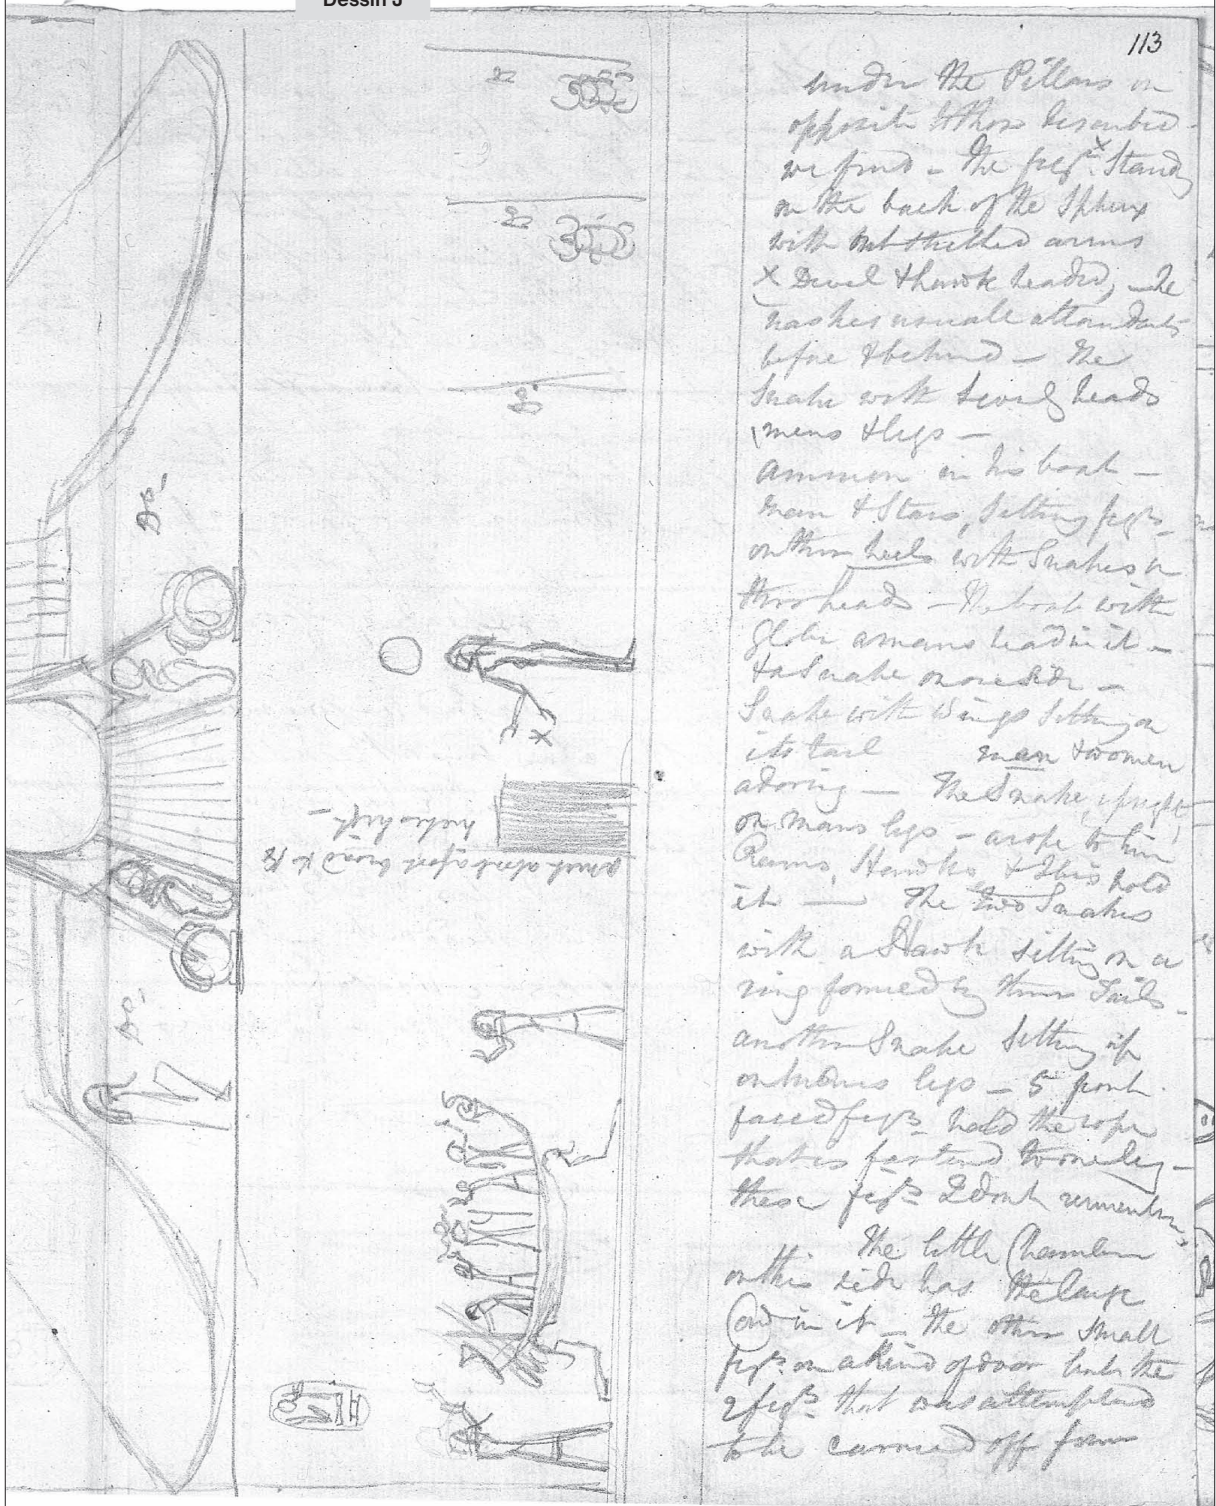 Dessin J
113
under the Pillars on
opposite to those described
we find - The figr. x Stands
on the back of the Sphinx
with out stretched arms
x Devil & hawk headed, - he
has his usuall attendants
before & behind - The
Snake with several heads
mens & legs -
ammon in his boat -
man & Stars, Sitting figrs.
on their heels with Snakes on
their heads - The boat with
Globe a mans head in it -
& a Snake on one side -
Snake with Wings Sitting on
its tail man & women
adoring - The Snake upright
on mans legs - a rope to him
Rams, Hawks, & Ibis hold
it - The two Snakes
with a Hawk sitting on a
ring formed by their Tails -
another Snake Sitting up
on legs - 5 front
faced figrs. hold the rope
that is fastend to one leg -
these figrs. I dont remember
The little Chamber
on this side has the large
in it - The other Small
figrs. on a kind of door like the
2 figrs. that was attempted
to be carried off from
Do.
Do.
x
bench about a foot broad & 18
inches high -